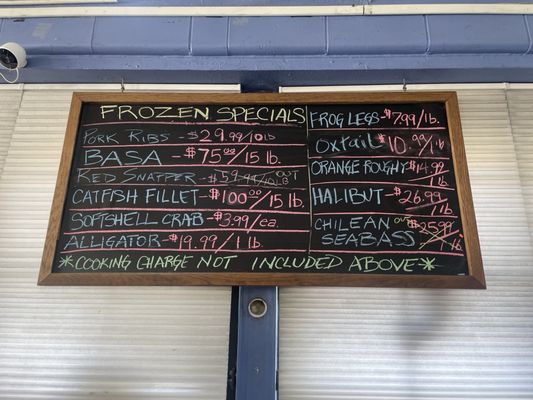 FROZEN SPECIALS
PORK RIBS - $29.99/10lb
BASA - $75.00/15 lb.
RED SNAPPER - $59.99/10LB OUT
CATFISH FILLET - $100.00/15 lb.
SOFTSHELL CRAB - $3.99/ea.
ALLIGATOR - $19.99/1 lb.
FROG LEGS - $7.99/lb.
OXTAIL - $10.99/lb.
ORANGE ROUGHY - $14.99/1 lb.
HALIBUT - $26.99/1 lb
CHILEAN SEABASS OUT $25.99/1 lb.
*COOKING CHARGE NOT INCLUDED ABOVE*